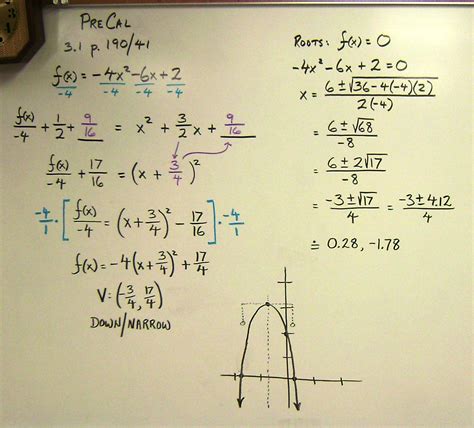 PreCal
3.1 p. 190/41
f(x) = -4x² - 6x + 2
-4 -4 -4 -4
f(x)/-4 + 1/2 + 9/16 = x² + 3/2 x + 9/16
f(x)/-4 + 17/16 = (x + 3/4)²
-4/1 · [f(x)/-4 = (x + 3/4)² - 17/16] · -4/1
f(x) = -4(x + 3/4)² + 17/4
V: (-3/4, 17/4)
DOWN/NARROW
ROOTS: f(x) = 0
-4x² - 6x + 2 = 0
x = 6 ± √36 - 4(-4)(2) / 2(-4)
= 6 ± √68 / -8
= 6 ± 2√17 / -8
= -3 ± √17 / 4 = -3 ± 4.12 / 4
≐ 0.28, -1.78